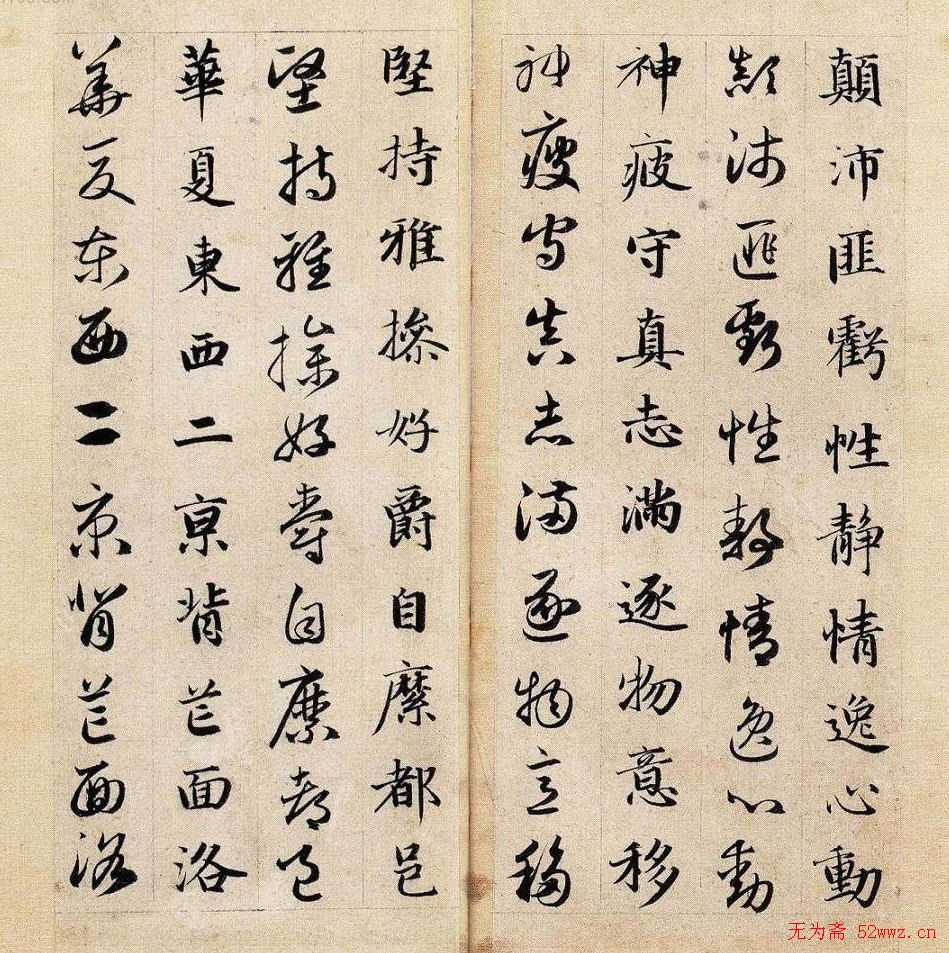 顛沛匪虧性靜情逸心動
顛沛匪虧性靜情逸心動
神疲守真志滿逐物意移
神疲守真志滿逐物意移
堅持雅操好爵自縻都邑
堅持雅操好爵自縻都邑
華夏東西二京背芒面洛
華夏東西二京背芒面洛
无为斋 52wwz.cn